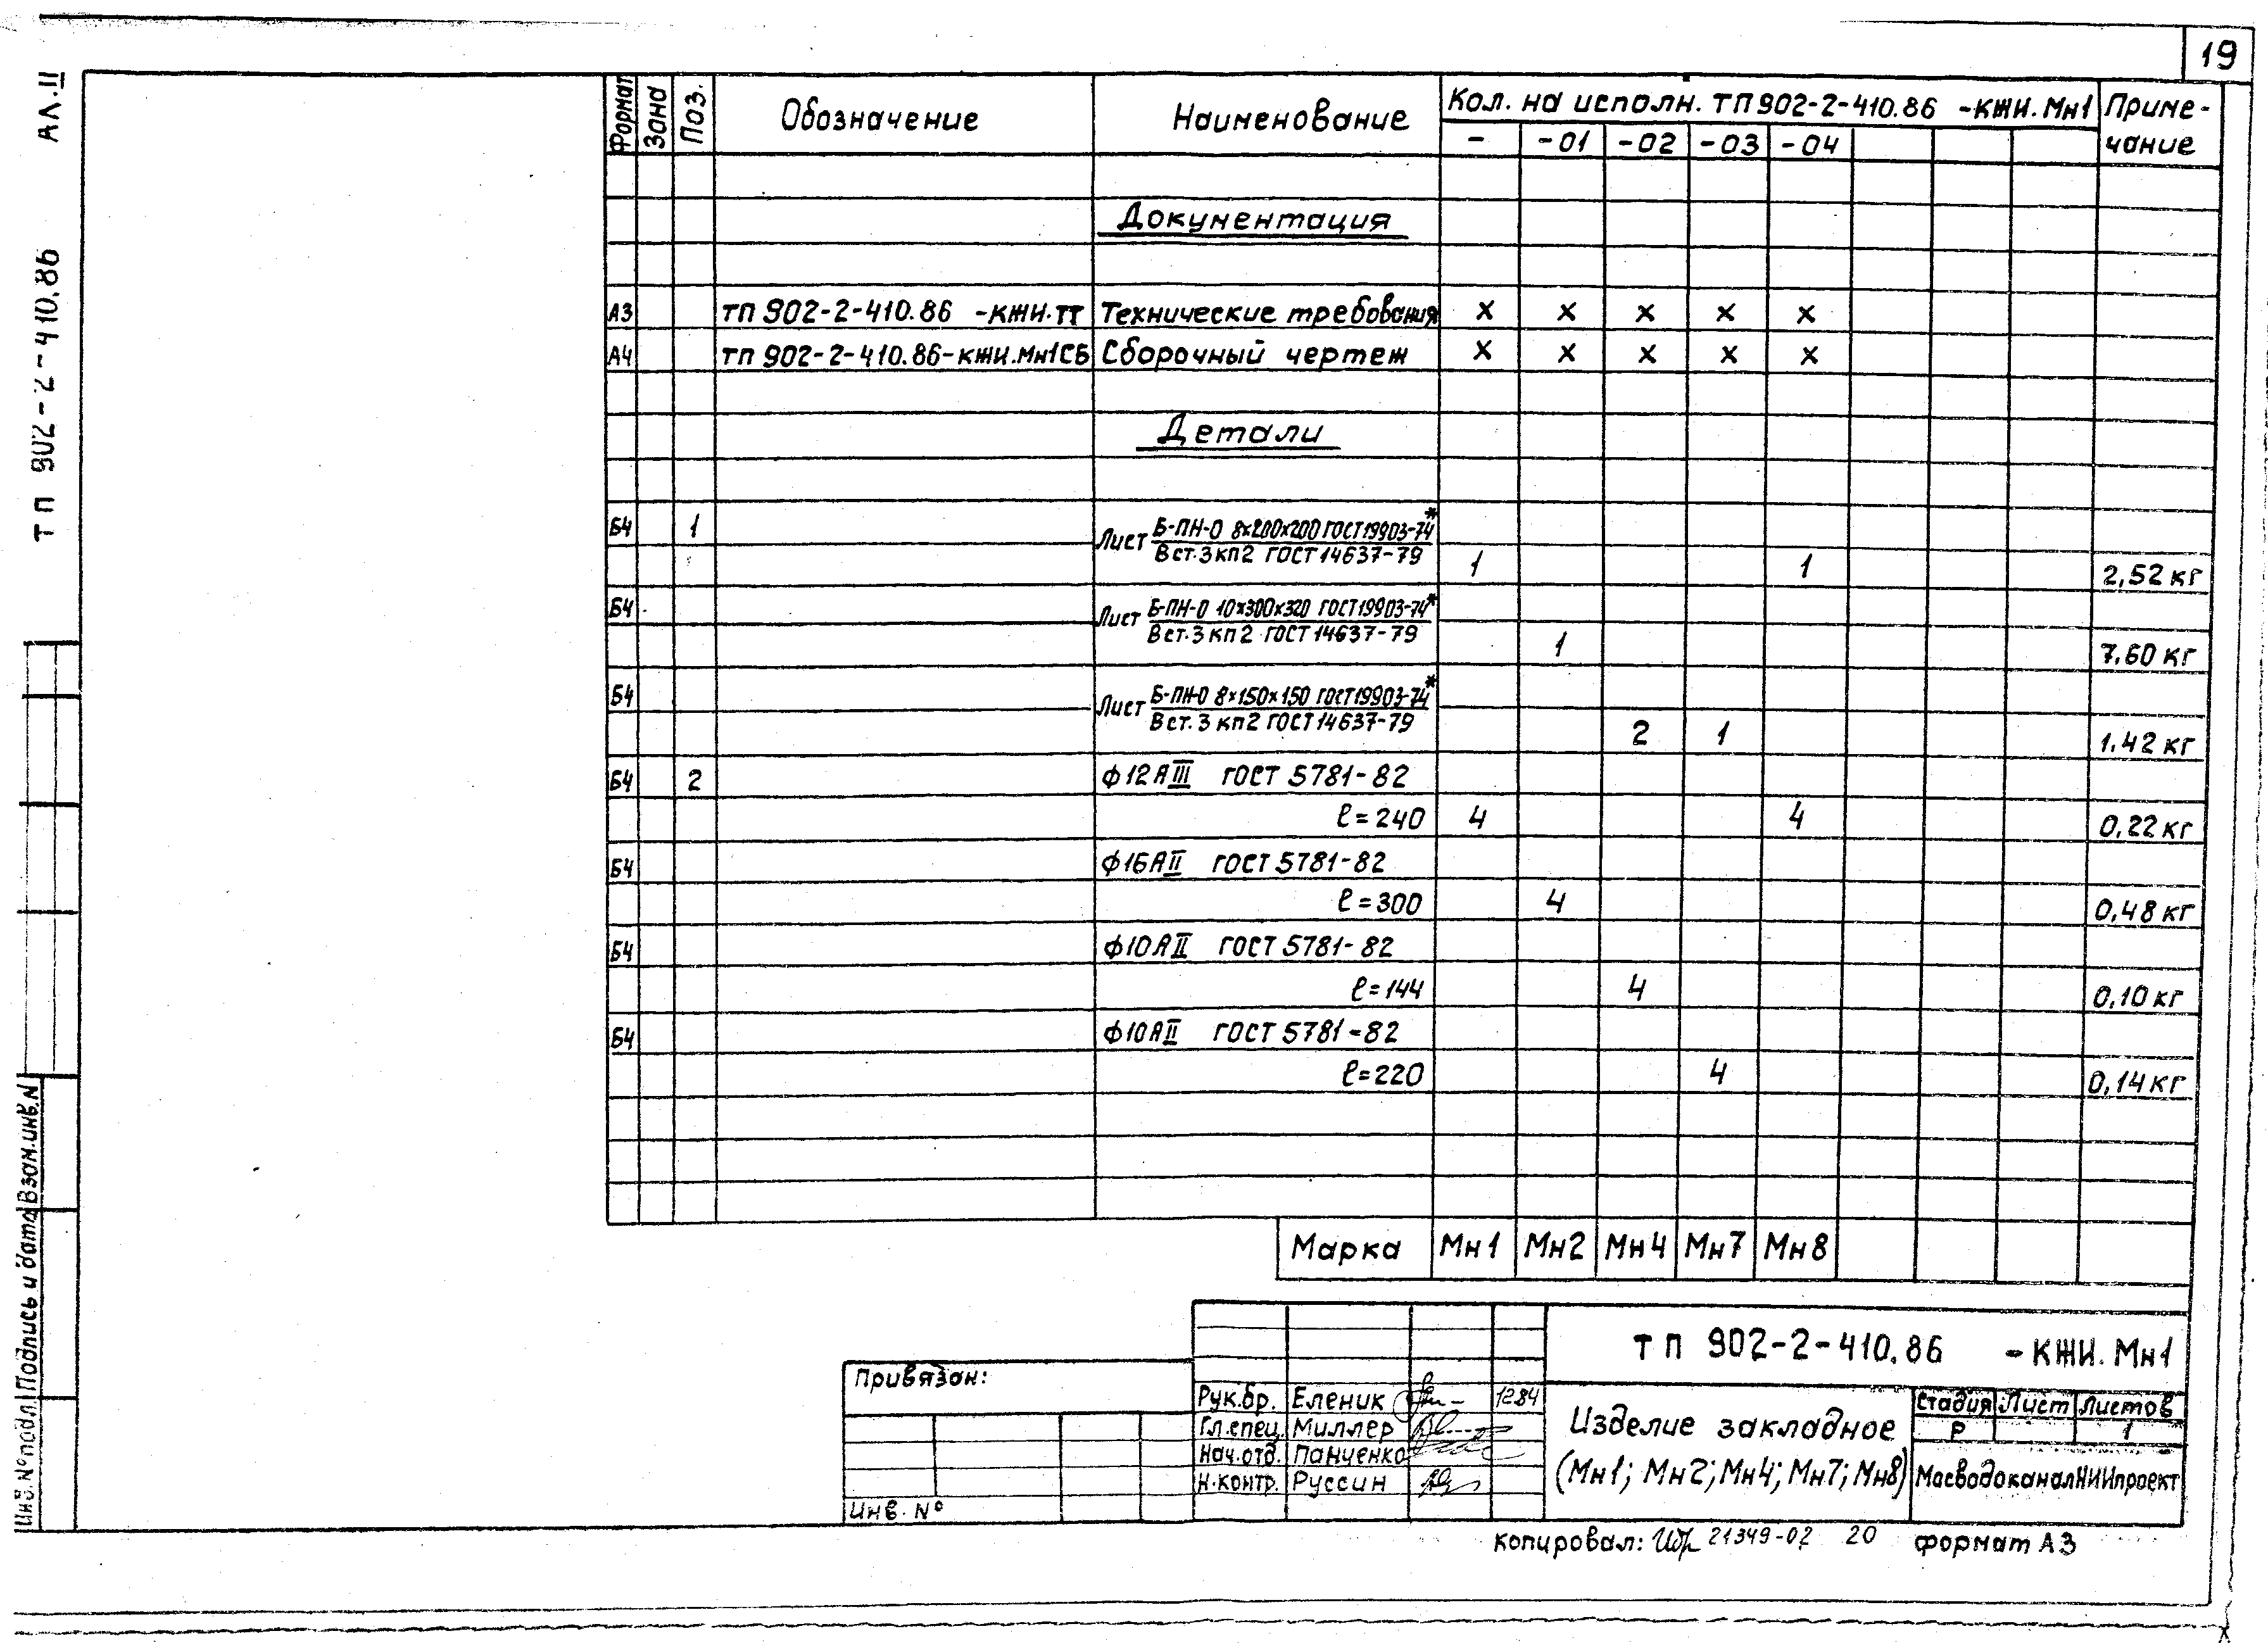 19
АЛ. II
ТП 902-2-410.86
Формат Зона Поз. Обозначение Наименование Кол. на исполн. ТП 902-2-410.86 -КЖИ.Мн1 Приме-
- -01 -02 -03 -04 чание
Документация
А3 ТП 902-2-410.86 -КЖИ.ТТ Технические требования х х х х х
А4 ТП 902-2-410.86-КЖИ.Мн1СБ Сборочный чертеж х х х х х
Детали
Б4 1 Лист Б-ПН-О 8х200х200 ГОСТ 19903-74*
Вст.3кп2 ГОСТ 14637-79 1 1 2,52 кг
Б4 Лист Б-ПН-О 10х300х320 ГОСТ 19903-74*
Вст.3кп2 ГОСТ 14637-79 1 7,60 кг
Б4 Лист Б-ПН-О 8х150х150 ГОСТ 19903-74*
Вст.3кп2 ГОСТ 14637-79 2 1 1,42 кг
Б4 2 ф12АIII ГОСТ 5781-82
ℓ=240 4 4 0,22 кг
Б4 ф16АII ГОСТ 5781-82
ℓ=300 4 0,48 кг
Б4 ф10АII ГОСТ 5781-82
ℓ=144 4 0,10 кг
Б4 ф10АII ГОСТ 5781-82
ℓ=220 4 0,14 кг
Марка Мн1 Мн2 Мн4 Мн7 Мн8
ТП 902-2-410.86 -КЖИ.Мн1
Привязан:
Инв. №
Рук.бр. Еленик 12.84
Гл.спец. Миллер
Нач.отд. Панченко
Н.контр. Руссин
Изделие закладное
(Мн1; Мн2; Мн4; Мн7; Мн8)
Стадия Лист Листов
Р 1
МосводоканалНИИпроект
Копировал: 21349-02 20 формат А3
Инв.№подл Подпись и дата Взам.инв.N